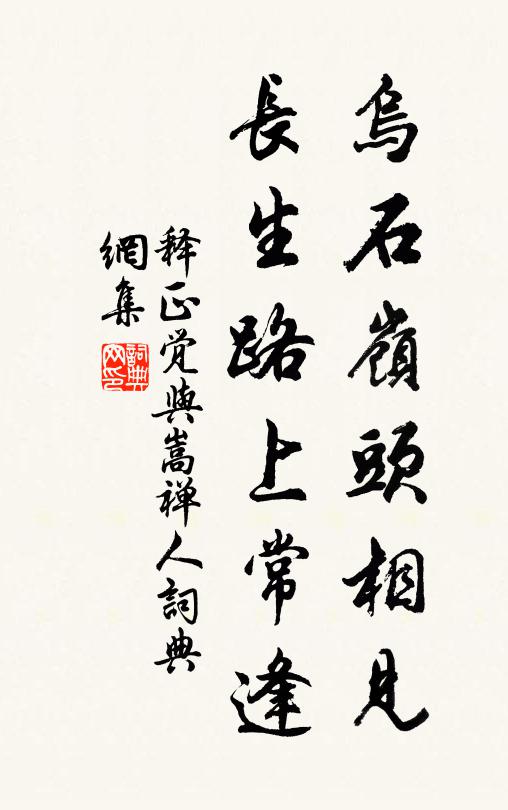 烏石嶺頭相見
長生路上常逢
释正覚與嵩禅人詞典
網集
詞典
网印